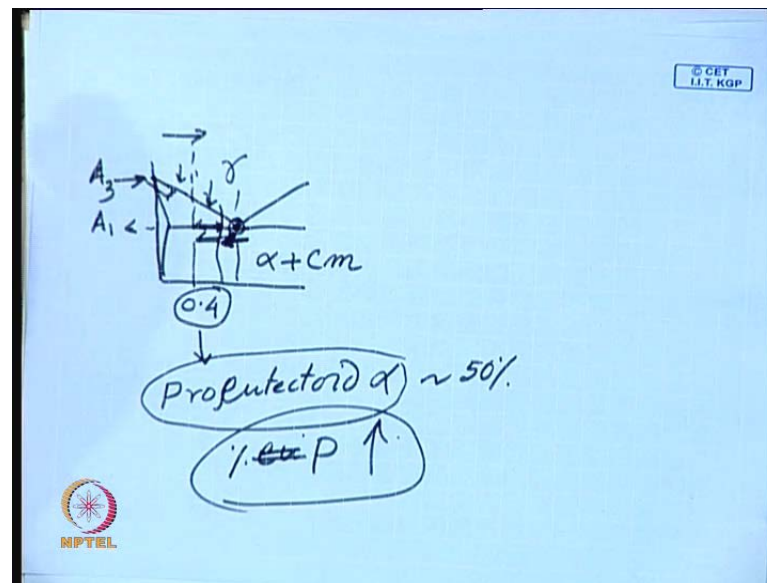 © CET
I.I.T. KGP
A₃
γ
A₁
α + Cm
0.4
Proeutectoid α ~ 50%.
% P ↑
NPTEL